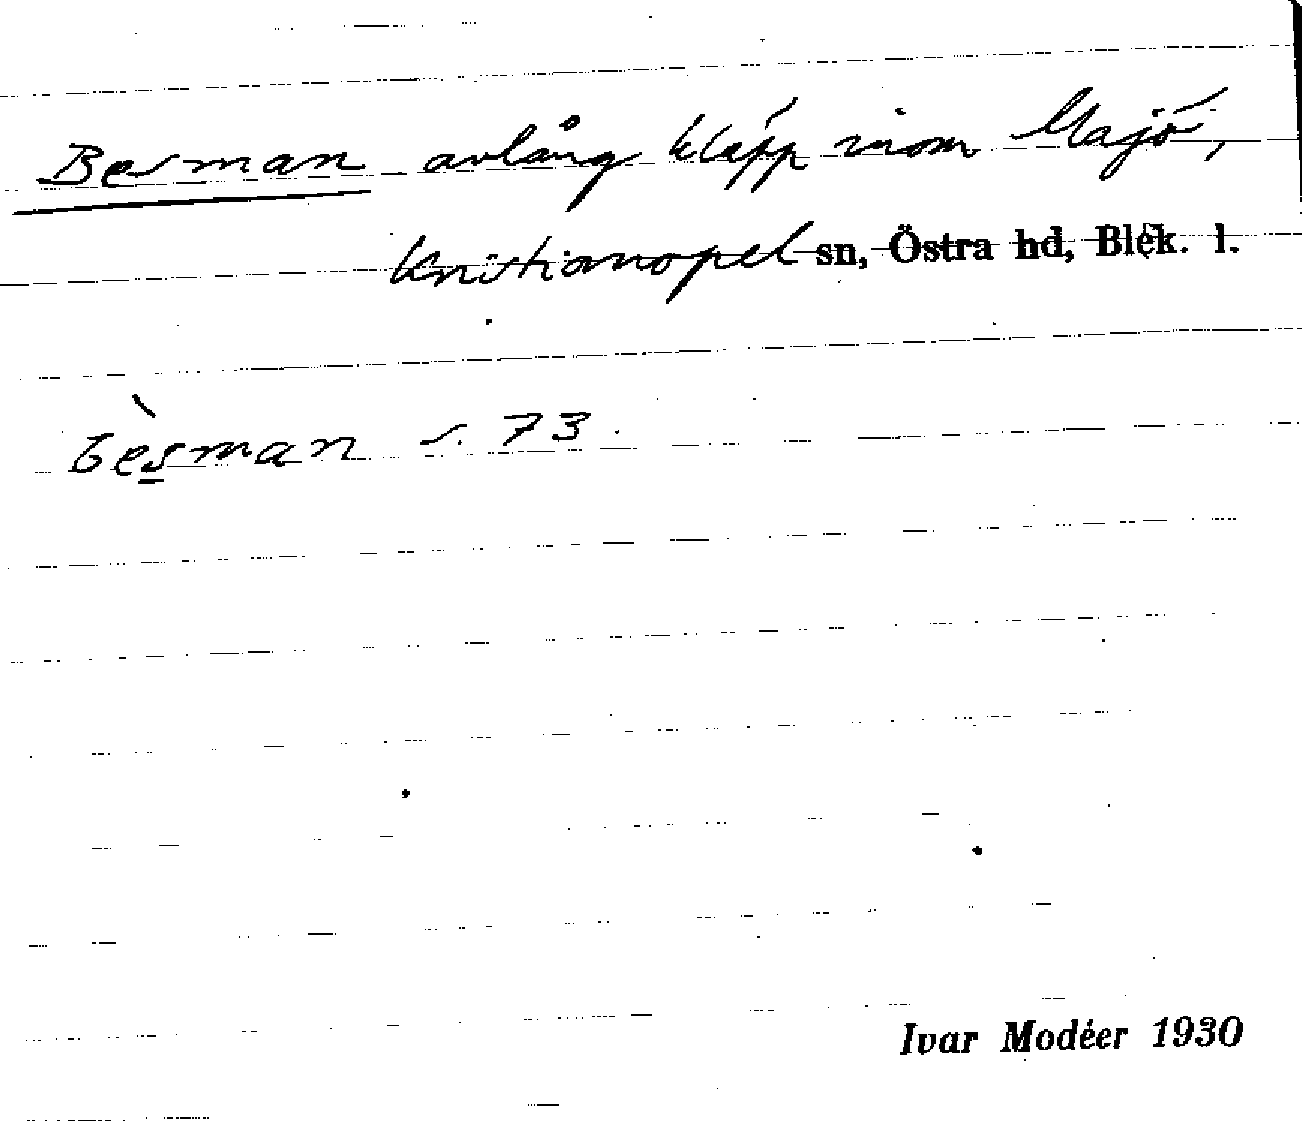 Besman avlång kläpp inom Majö,
Kristianopel sn, Östra hd, Blek. l.
bèsman s. 73.
Ivar Modéer 1930